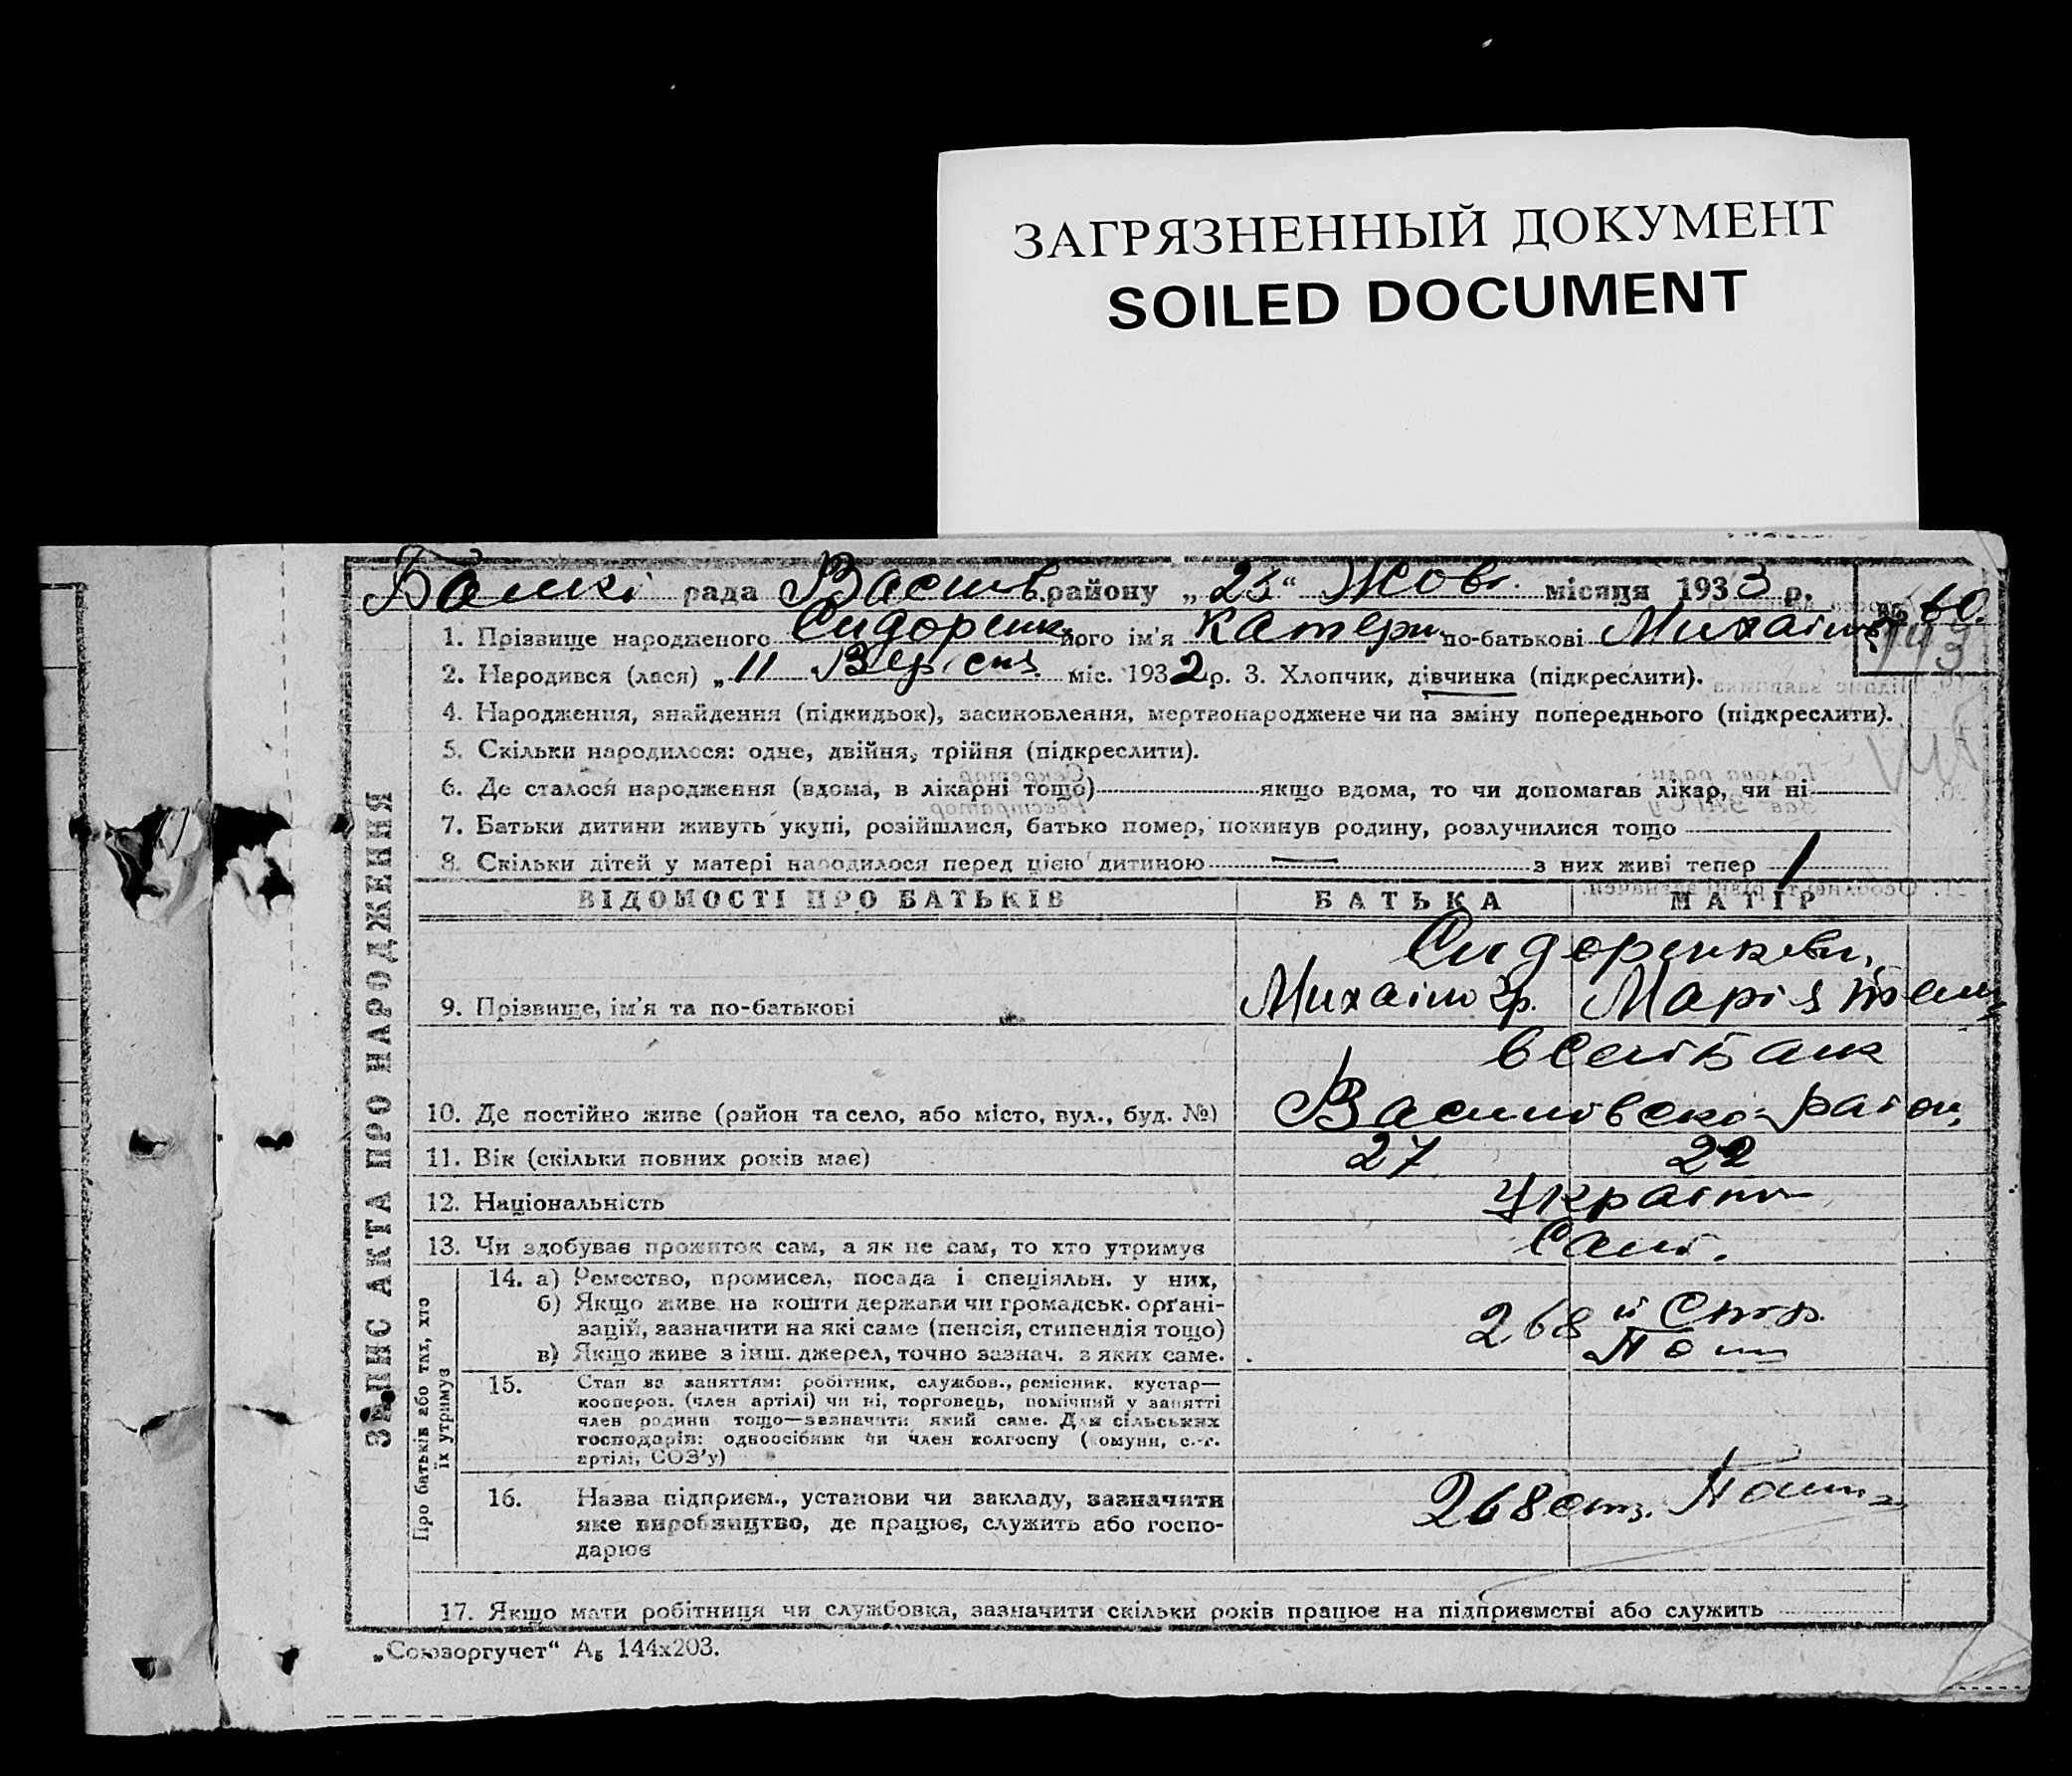 ЗАГРЯЗНЕННЫЙ ДОКУМЕНТ
SOILED DOCUMENT
рада району „25“ Жовт. місяця 1933 р. № 60.
143
1. Прізвище народженого Сидоренк його ім'я Катери по-батькові Михайлів
2. Народився (лася) „ 11 Вересня міс. 1932 р. 3. Хлопчик, дівчинка (підкреслити).
4. Народження, знайдення (підкидьок), засиновлення, мертвонароджене чи на зміну попереднього (підкреслити).
5. Скільки народилося: одне, двійня, трійня (підкреслити).
6. Де сталося народження (вдома, в лікарні тощо) якщо вдома, то чи допомагав лікар, чи ні
7. Батьки дитини живуть укупі, розійшлися, батько помер, покинув родину, розлучилися тощо
8. Скільки дітей у матері народилося перед цією дитиною — з них живі тепер 1
ЗАПИС АКТА ПРО НАРОДЖЕННЯ
ВІДОМОСТІ ПРО БАТЬКІВ БАТЬКА МАТІР
Сидоренкови
9. Прізвище, ім'я та по-батькові Михаіло Гр. Марія
10. Де постійно живе (район та село, або місто, вул., буд. №)
11. Вік (скільки повних років має) 27 22
12. Національність Україн
13. Чи здобуває прожиток сам, а як не сам, то хто утримує Сами.
Про батьків або тих, хто їх утримує
14. а) Ремество, промисел, посада і спеціяльн. у них,
б) Якщо живе на кошти держави чи громадськ. органі-
зацій, зазначити на які саме (пенсія, стипендія тощо) 268
в) Якщо живе з інш. джерел, точно зазнач. з яких саме.
15. Стан за заняттям: робітник, службов., ремісник, кустар—
кооперов. (член артілі) чи ні, торговець, помічний у занятті
член родини тощо—зазначити який саме. Для сільських
господарів: одноосібник чи член колгоспу (комуни, с.-г.
артілі, СОЗ'у)
16. Назва підприєм., установи чи закладу, зазначити 268
яке виробництво, де працює, служить або госпо-
дарює
17. Якщо мати робітниця чи службовка, зазначити скільки років працює на підприємстві або служить
„Союзоргучет“ А₅ 144х203.